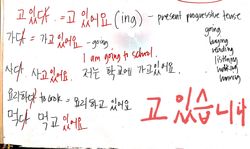 고 있다. = 고 있어요 (ing) - present progressive tense
가다 = 가고 있어요 - going
I am going to school.
사다 사고 있어요 저는 학교에 가고 있어요.
요리하다 to cook = 요리하고 있어요
먹다 먹고 있어요
going
buying
reading
listening
walking
running
고 있습니다